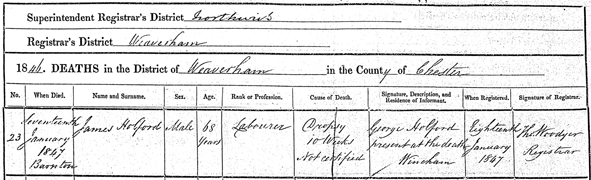 Superintendent Registrar's District Northwich
Registrar's District Weaverham
1846. DEATHS in the District of Weaverham in the County of Chester
No. When Died. Name and Surname. Sex. Age. Rank or Profession. Cause of Death. Signature, Description, and Residence of Informant. When Registered. Signature of Registrar.
23 Seventeenth January 1847 Barnton James Holford Male 68 Years Labourer Dropsy 10 Weeks Not certified George Holford present at the death Wincham Eighteenth January 1847 Thos Woodyer Registrar